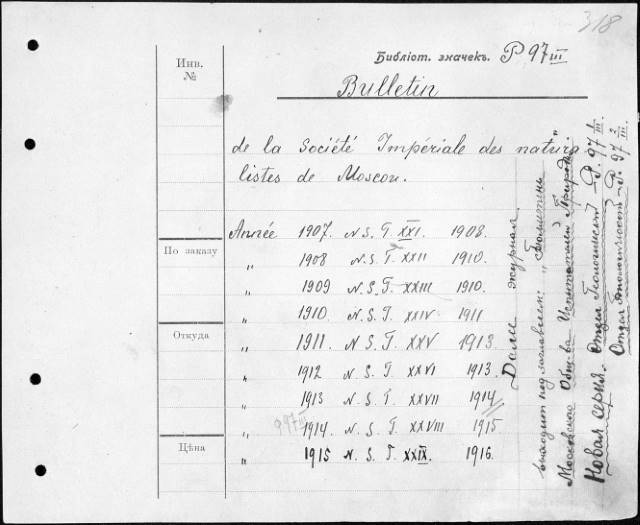 318
Инв.
№
Библіот. значекъ. P 97 III
Bulletin
de la Société Impériale des natura-
listes de Moscou.
Année 1907. N. S. T. XXI. 1908.
„ 1908 N. S. T. XXII 1910.
„ 1909 N. S. T. XXIII 1910.
„ 1910. N. S. T. XXIV 1911
„ 1911. N. S. T. XXV 1913
„ 1912 N. S. T. XXVI 1913.
„ 1913 N. S. T. XXVII 1914
„ 1914. N. S. T. XXVIII 1915
„ 1915 N. S. T. XXIX. 1916.
По заказу
Откуда
Цѣна
Далее журнал
выходит под заглавием: „Бюллетень
Московского Общ-ва Испытателей Природы".
Новая серия. Отдел Геологический – P. 97 1/III.
P. 97 2/III
P 97 III